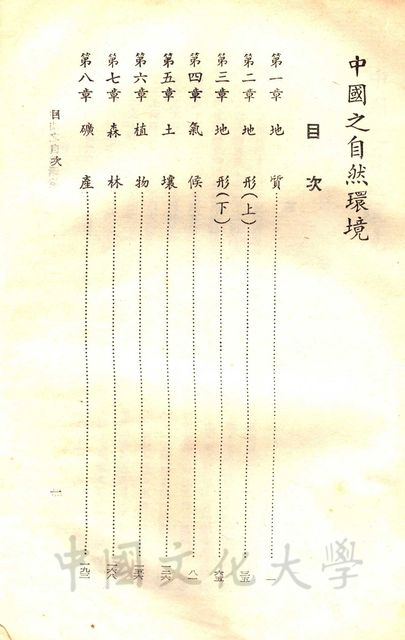 中國之自然環境
目次
第一章 地質……一
第二章 地形(上)……三五
第三章 地形(下)……六五
第四章 氣候……八一
第五章 土壤……一三六
第六章 植物……一五六
第七章 森林……一六八
第八章 礦產……一九三
目次
一
中國文化大學